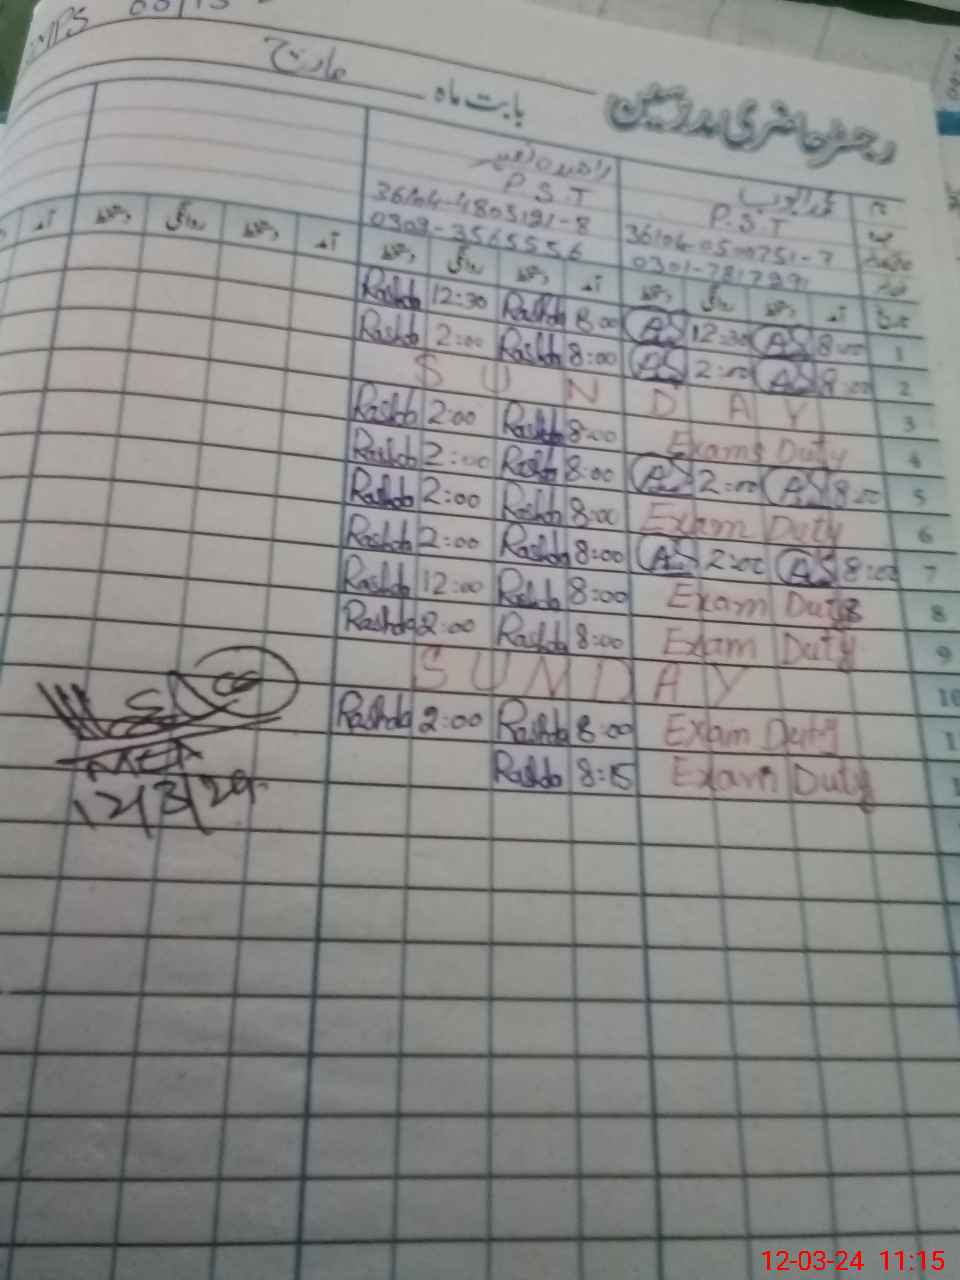 رجسٹر حاضری مدرسین بابت ماہ مارچ
P.S.T P.S.T
36104-4803191-8
0309-3565556 0301-
آمد دستخط روانگی دستخط آمد دستخط روانگی دستخط آمد دستخط روانگی دستخط آمد
Rashda 12:30 Rashda 8:00 AS 12:30 AS 8:00 1
Rashda 2:00 Rashda 8:00 AS 2:00 AS 8:00 2
SUNDAY 3
Rashda 2:00 Rashda 8:00 Exams Duty 4
Rashda 2:00 Rashda 8:00 AS 2:00 AS 8:00 5
Rashda 2:00 Rashda 8:00 Exam Duty 6
Rashda 2:00 Rashda 8:00 AS 2:00 AS 8:00 7
Rashda 12:00 Rashda 8:00 Exam Duty 8
Rashda 2:00 Rashda 8:00 Exam Duty 9
SUNDAY 10
Rashda 2:00 Rashda 8:00 Exam Duty
Rashda 8:15 Exam Duty
12/3/24
12-03-24 11:15